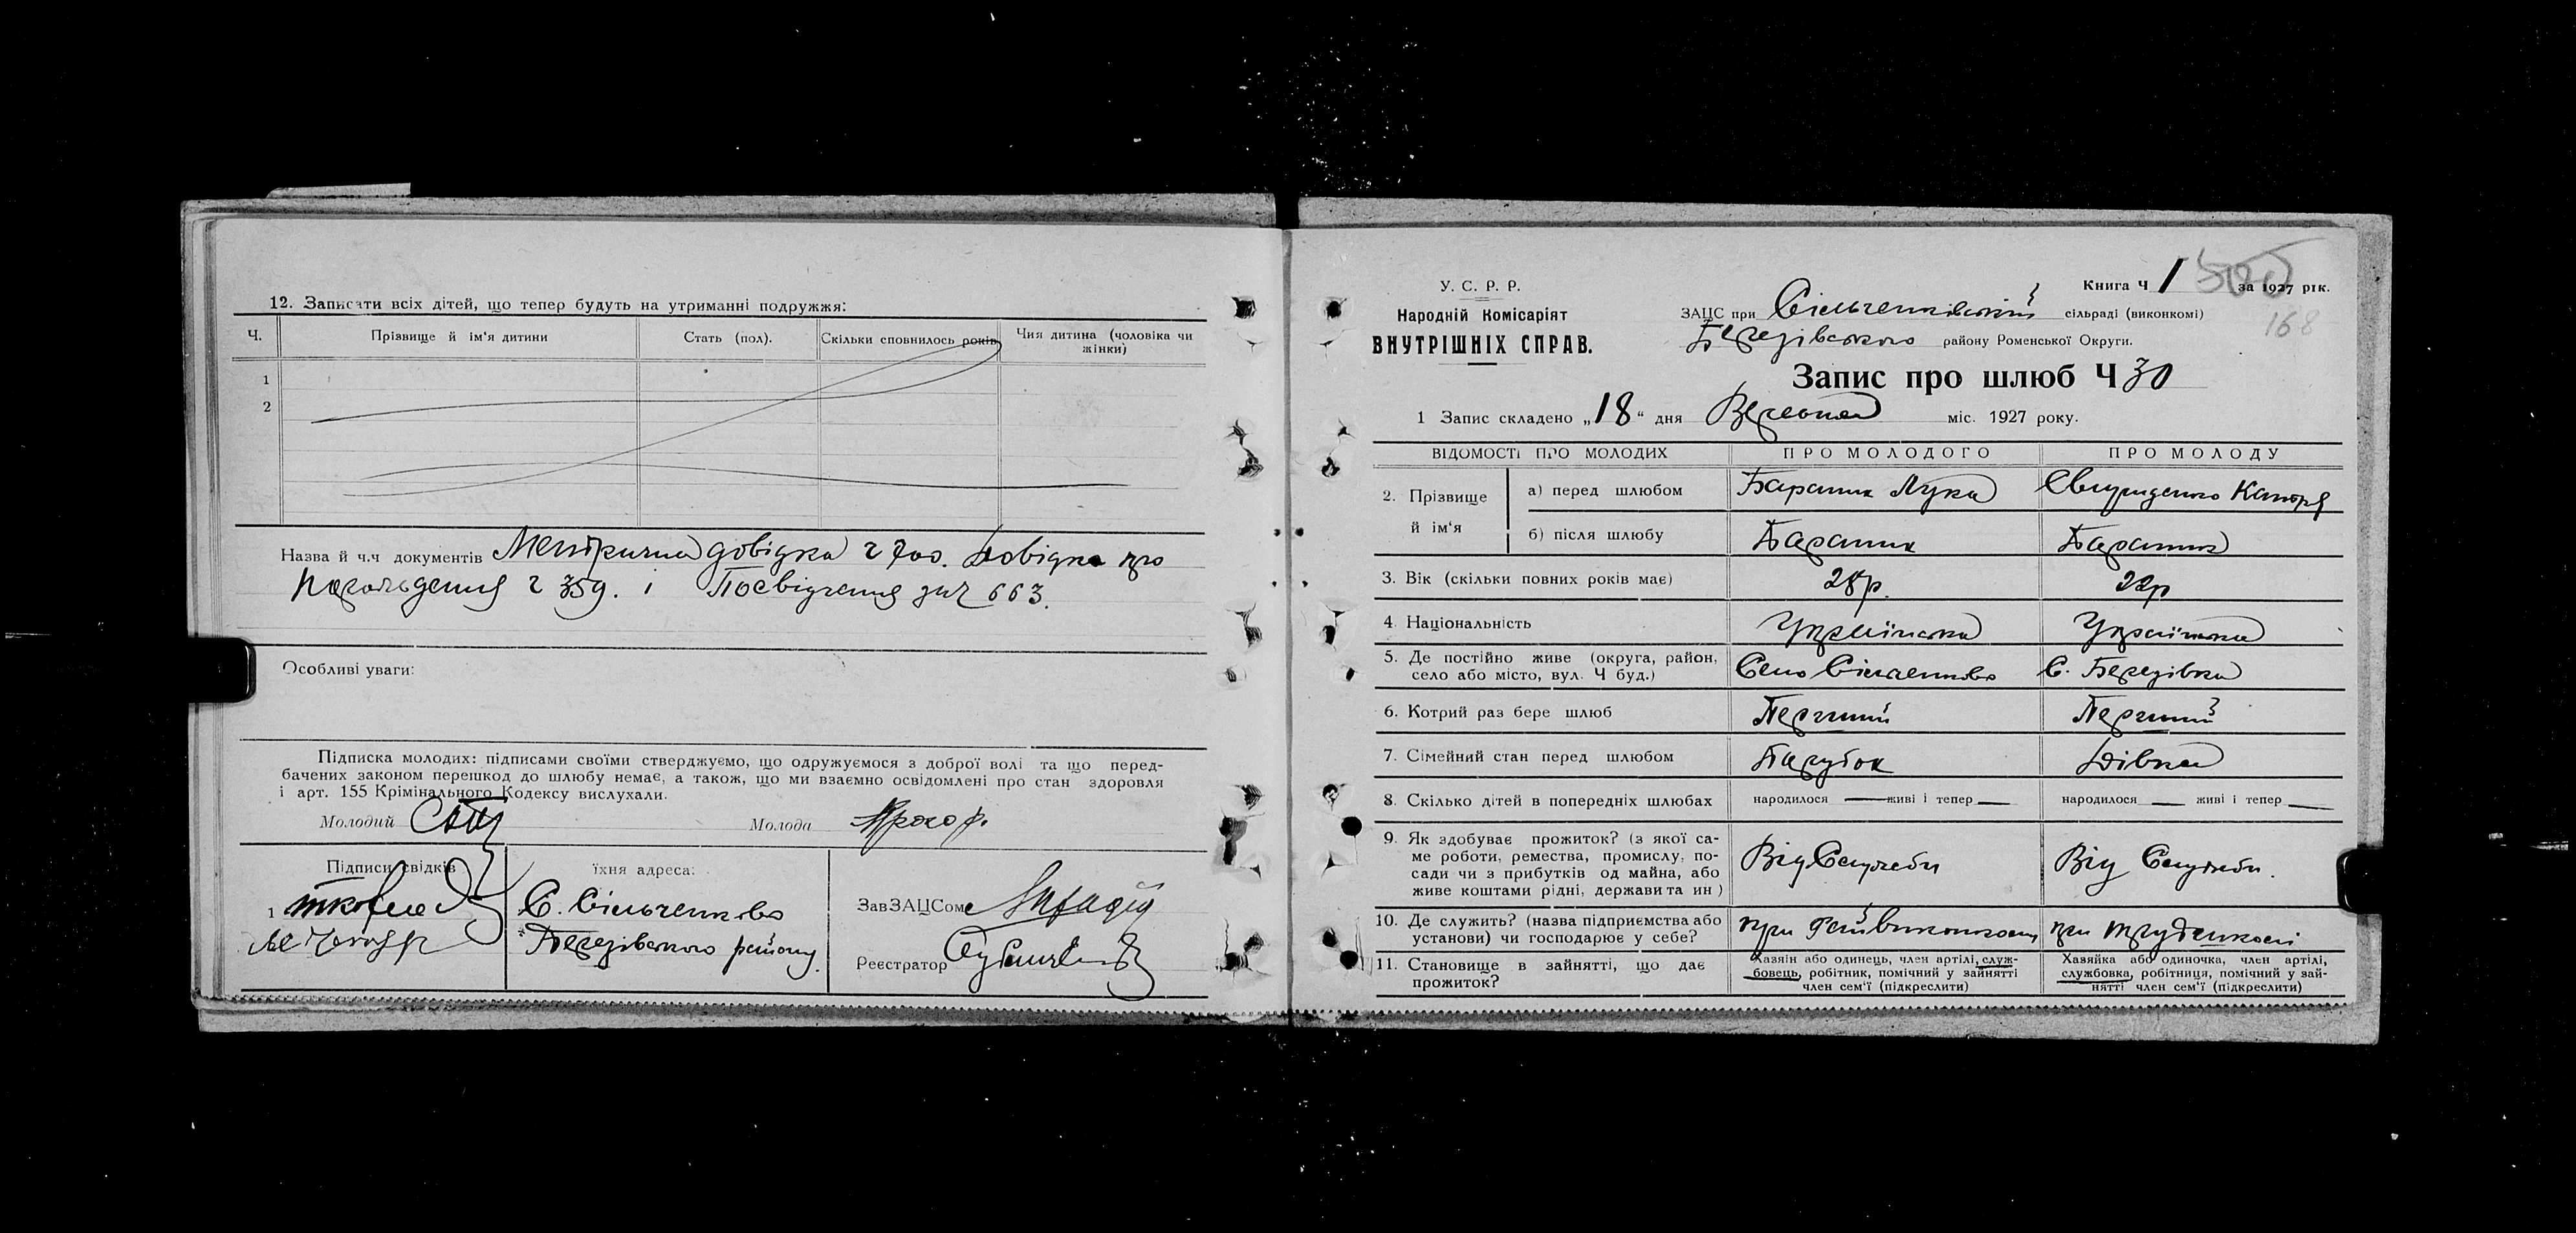 12. Записати всіх дітей, що тепер будуть на утриманні подружжя:
Ч. Прізвище й ім'я дитини Стать (пол). Скільки сповнилось років Чия дитина (чоловіка чи жінки)
1
2
Назва й ч.ч документів Метрична довідка ч 700. Довідка про
походження ч 359. і Посвідчення за ч 663.
Особливі уваги:
Підписка молодих: підписами своїми стверджуємо, що одружуємося з доброї волі та що перед-
бачених законом перешкод до шлюбу немає, а також, що ми взаємно освідомлені про стан здоровля
і арт. 155 Крімінального Кодексу вислухали.
Молодий Молода
Підписи свідків їхня адреса:
1 С. Сільченково ЗавЗАЦСом
Березівського району. Реєстратор
У. С. Р. Р.
Народній Комісаріят
ВНУТРІШНІХ СПРАВ.
Книга Ч 1 за 1927 рік.
168
ЗАЦС при Сільченківській сільраді (виконкомі)
Березівського району Роменської Округи.
Запис про шлюб Ч 30
1 Запис складено „18" дня Вересня міс. 1927 року.
ВІДОМОСТІ ПРО МОЛОДИХ ПРО МОЛОДОГО ПРО МОЛОДУ
2. Прізвище й ім'я а) перед шлюбом Бараник Лука
б) після шлюбу Бараник Бараник
3. Вік (скільки повних років має) 28р. 22р
4. Національність Українська Українка
5. Де постійно живе (округа, район,
село або місто, вул. Ч буд.) Село Сільченково С. Березівка
6. Котрий раз бере шлюб Перший Перший
7. Сімейний стан перед шлюбом Парубок Дівка
8. Скілько дітей в попередніх шлюбах народилося — живі і тепер — народилося — живі і тепер —
9. Як здобуває прожиток? (з якої са-
ме роботи, ремества, промислу, по-
сади чи з прибутків од майна, або
живе коштами рідні, держави та ин) Від Служби Від Служби.
10. Де служить? (назва підприємства або
установи) чи господарює у себе? при Райвиконкомі при
11. Становище в зайнятті, що дає
прожиток?
Хазяїн або одинець, член артілі, служ-
бовець, робітник, помічний у зайнятті
член сем'ї (підкреслити)
Хазяйка або одиночка, член артілі,
службовка, робітниця, помічний у зай-
нятті член сем'ї (підкреслити)